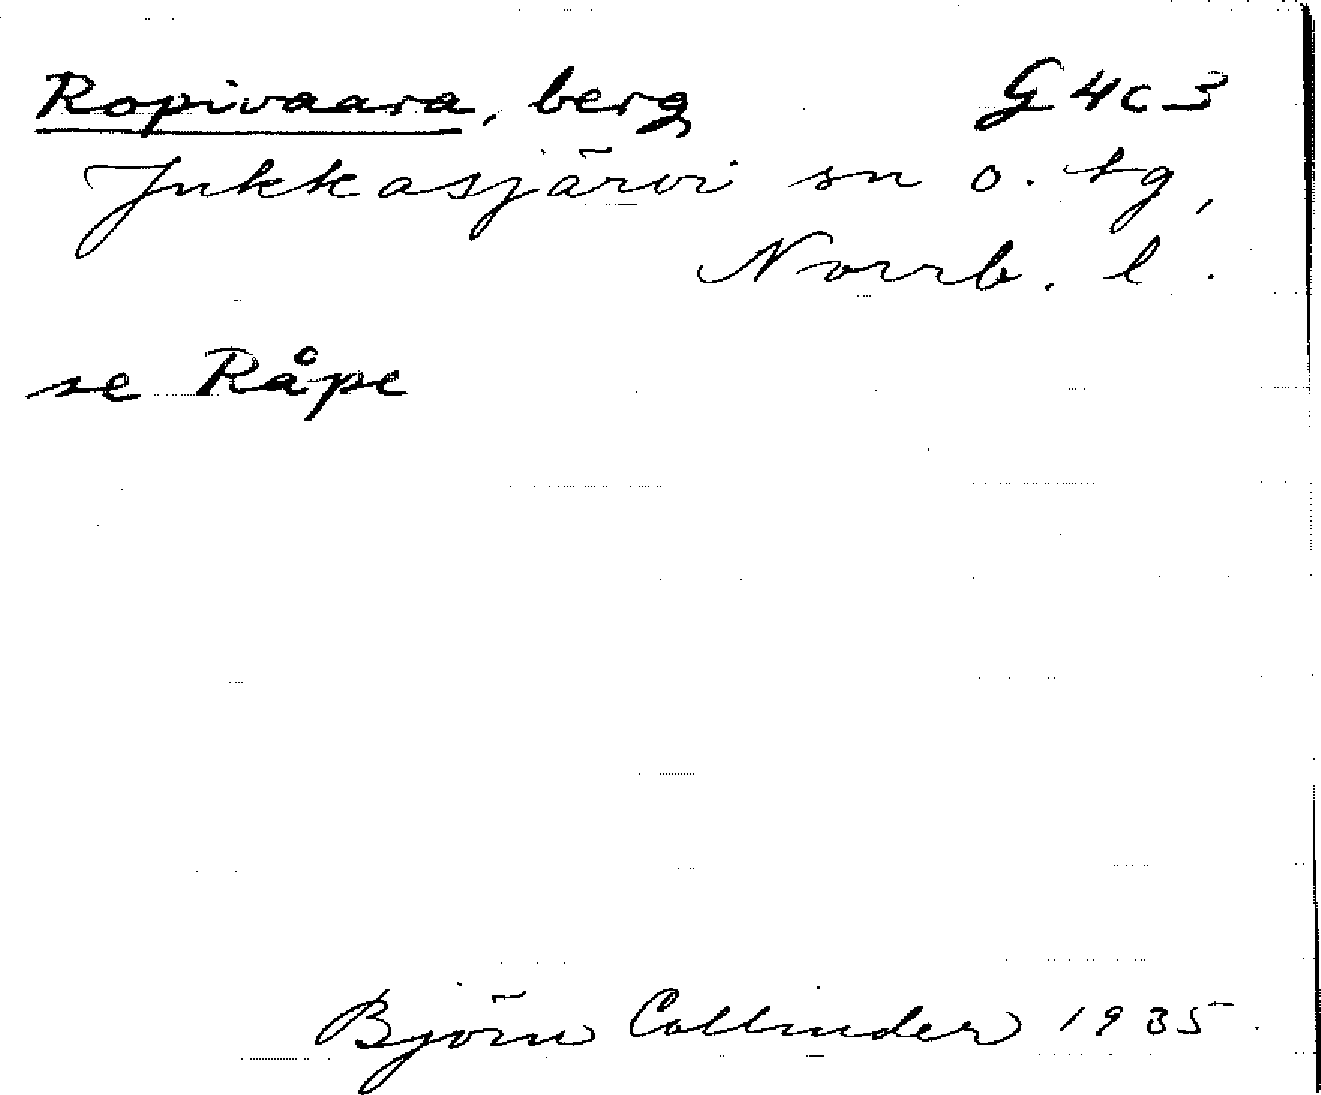 Ropivaara, berg G4c3
Jukkasjärvi sn o. tg,
Norrb. l.
se Råpe
Björn Collinder 1935